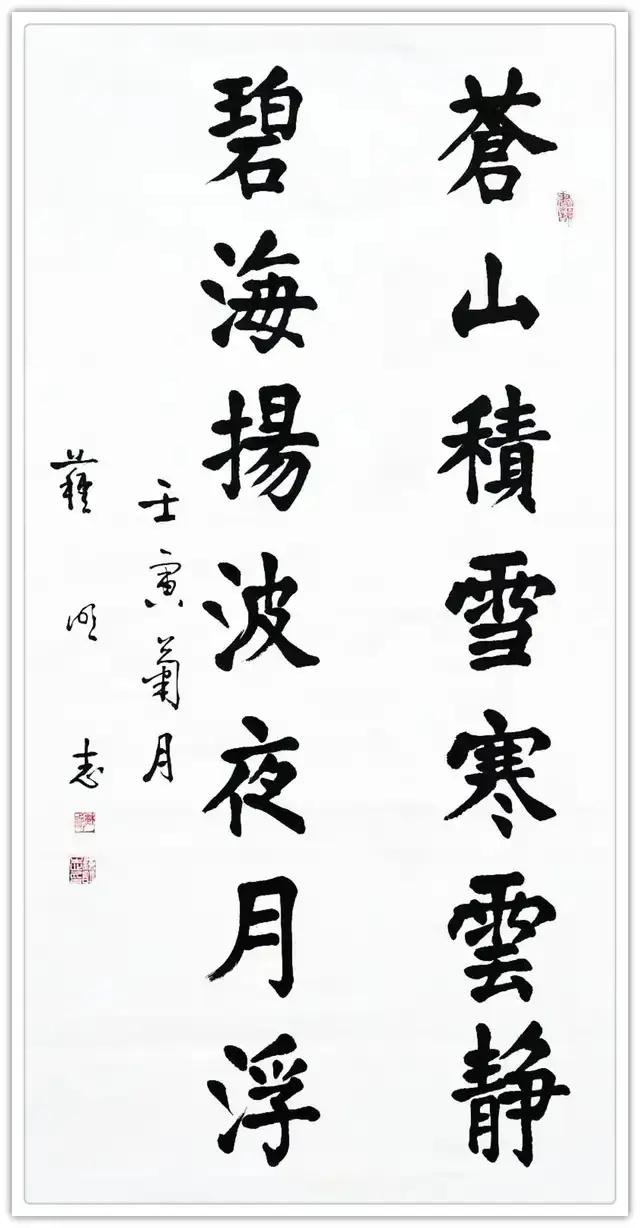 蒼山積雪寒雲静
碧海揚波夜月浮
壬寅菊月
蘇明志